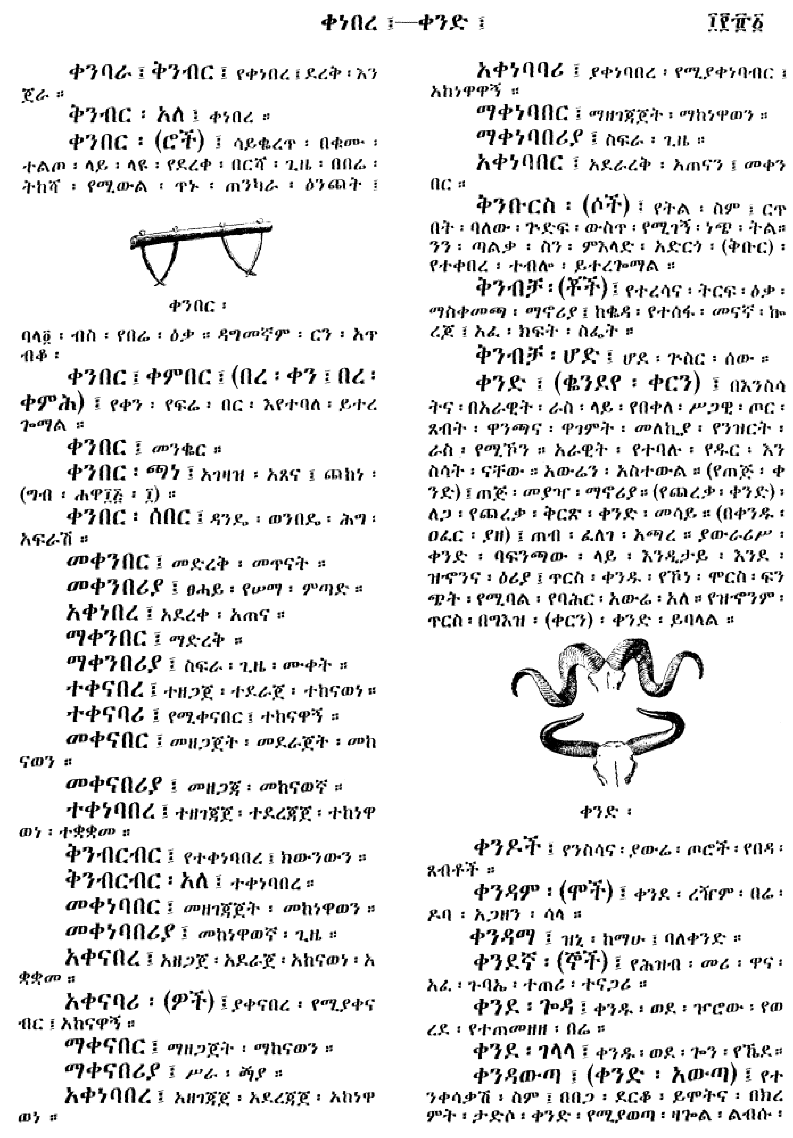 ቀነበረ ፤—ቀንድ ፤
ቀንባራ ፤ ቅንብር ፤ የቀነበረ ፤ ደረቅ ፡ እን
ጀራ ።
ቅንብር ፡ አለ ፤ ቀነበረ ።
ቀንበር ፡ (ሮች) ፤ ሳይቈረጥ ፡ በቁሙ ፡
ተልጦ ፡ ላይ ፡ ላዩ ፡ የደረቀ ፡ በርሻ ፡ ጊዜ ፡ በበሬ ፡
ትከሻ ፡ የሚውል ፡ ጥኑ ፡ ጠንካራ ፡ ዕንጨት ፤
ቀንበር ፡
ባላ፬ ፡ ብስ ፡ የበሬ ፡ ዕቃ ። ዳግመኛም ፡ ርን ፡ አጥ
ብቆ ፡
ቀንበር ፤ ቀምበር ፤ (በረ ፡ ቀን ፤ በረ ፡
ቀምሕ) ፤ የቀን ፡ የፍሬ ፡ በር ፡ እየተባለ ፡ ይተረ
ጐማል ።
ቀንበር ፤ መንቈር ።
ቀንበር ፡ ጫነ ፤ አገዛዝ ፡ አጸና ፤ ጨከነ ፡
(ግብ ፡ ሐዋ፲፭ ፡ ፲) ።
ቀንበር ፡ ሰበር ፤ ዳንዴ ፡ ወንበዴ ፡ ሕግ ፡
አፍራሽ ።
መቀንበር ፤ መድረቅ ፡ መጥናት ።
መቀንበሪያ ፤ ፀሓይ ፡ የሠማ ፡ ምጣድ ።
አቀነበረ ፤ አደረቀ ፡ አጠና ።
ማቀንበር ፤ ማድረቅ ።
ማቀንበሪያ ፤ ስፍራ ፡ ጊዜ ፡ ሙቀት ።
ተቀናበረ ፤ ተዘጋጀ ፡ ተደራጀ ፡ ተከናወነ ።
ተቀናባሪ ፤ የሚቀናበር ፤ ተከናዋኝ ።
መቀናበር ፤ መዘጋጀት ፡ መደራጀት ፡ መከ
ናወን ።
መቀናበሪያ ፤ መዘጋጃ ፡ መከናወኛ ።
ተቀነባበረ ፤ ተዘገጃጀ ፡ ተደረጃጀ ፡ ተከነዋ
ወነ ፡ ተቋቋመ ።
ቅንብርብር ፤ የተቀነባበረ ፤ ክውንውን ።
ቅንብርብር ፡ አለ ፤ ተቀነባበረ ።
መቀነባበር ፤ መዘገጃጀት ፡ መከነዋወን ።
መቀነባበሪያ ፤ መከነዋወኛ ፡ ጊዜ ።
አቀናበረ ፤ አዘጋጀ ፡ አደራጀ ፡ አከናወነ ፡ አ
ቋቋመ ።
አቀናባሪ ፡ (ዎች) ፤ ያቀናበረ ፡ የሚያቀና
ብር ፤ አከናዋኝ ።
ማቀናበር ፤ ማዘጋጀት ፡ ማከናወን ።
ማቀናበሪያ ፤ ሥራ ፡ ሟያ ።
አቀነባበረ ፤ አዘገጃጀ ፡ አደረጃጀ ፡ አከነዋ
ወነ ።
አቀነባባሪ ፤ ያቀነባበረ ፡ የሚያቀነባብር ፤
አከነዋዋኝ ።
ማቀነባበር ፤ ማዘገጃጀት ፡ ማከነዋወን ።
ማቀነባበሪያ ፤ ስፍራ ፡ ጊዜ ።
አቀነባበር ፤ አደራረቅ ፡ አጠናን ፤ መቀን
በር ።
ቅንቡርስ ፡ (ሶች) ፤ የትል ፡ ስም ፤ ርጥ
በት ፡ ባለው ፡ ጕድፍ ፡ ውስጥ ፡ የሚገኝ ፡ ነጭ ፡ ትል።
ንን ፡ ጣልቃ ፡ ስን ፡ ምእላድ ፡ አድርጎ ፡ (ቅቡር) ፡
የተቀበረ ፡ ተብሎ ፡ ይተረጐማል ።
ቅንብቻ ፡ (ቾች) ፤ የተረሳና ፡ ትርፍ ፡ ዕቃ ፡
ማስቀመጫ ፡ ማኖሪያ ፤ ከቈዳ ፡ የተሰፋ ፡ መናኛ ፡ ኰ
ረጆ ፤ አፈ ፡ ክፍት ፡ ስፌት ።
ቅንብቻ ፡ ሆድ ፤ ሆደ ፡ ጕስር ፡ ሰው ።
ቀንድ ፤ (ቄንደየ ፡ ቀርን) ፤ በእንስሳ
ትና ፡ በአራዊት ፡ ራስ ፡ ላይ ፡ የበቀለ ፡ ሥጋዊ ፡ ጦር ፡
ጸብት ፡ ዋንጫና ፡ ዋገምት ፡ መለኪያ ፡ የንዝርት ፡
ራስ ፡ የሚኾን ። አራዊት ፡ የተባሉ ፡ የዱር ፡ እን
ስሳት ፡ ናቸው ። አውሬን ፡ አስተውል ። (የጠጅ ፡ ቀ
ንድ) ፤ ጠጅ ፡ መያዣ ፡ ማኖሪያ ። (የጨረቃ ፡ ቀንድ) ፡
ለጋ ፡ የጨረቃ ፡ ቅርጽ ፡ ቀንድ ፡ መሳይ ። (በቀንዱ ፡
ዐፈር ፡ ያዘ) ፤ ጠብ ፡ ፈለገ ፡ አማረ ። ያውራሪሥ ፡
ቀንድ ፡ ባፍንጫው ፡ ላይ ፡ እንዲታይ ፡ እንደ ፡
ዝኆንና ፡ ዕሪያ ፤ ጥርስ ፡ ቀንዱ ፡ የኾነ ፡ ሞርስ ፡ ፍን
ጭት ፡ የሚባል ፡ የባሕር ፡ አውሬ ፡ አለ ። የዝኆንም ፡
ጥርስ ፡ በግእዝ ፡ (ቀርን) ፡ ቀንድ ፡ ይባላል ።
ቀንድ ፡
ቀንዶች ፤ የንስሳና ፡ ያውሬ ፡ ጦሮች ፡ የበዳ ፡
ጸብቶች ።
ቀንዳም ፡ (ሞች) ፤ ቀንደ ፡ ረዥም ፡ በሬ ፡
ዶባ ፡ አጋዘን ፡ ሳላ ።
ቀንዳማ ፤ ዝኒ ፡ ከማሁ ፤ ባለቀንድ ።
ቀንደኛ ፡ (ኞች) ፤ የሕዝብ ፡ መሪ ፡ ዋና ፡
አፈ ፡ ጉባኤ ፡ ተጠሪ ፡ ተናጋሪ ።
ቀንደ ፡ ጐዳ ፤ ቀንዱ ፡ ወደ ፡ ዦሮው ፡ የወ
ረደ ፡ የተጠመዘዘ ፡ በሬ ።
ቀንደ ፡ ገላላ ፤ ቀንዱ ፡ ወደ ፡ ጐን ፡ የኼደ።
ቀንዳውጣ ፤ (ቀንድ ፡ አውጣ) ፤ የተ
ንቀሳቃሽ ፡ ስም ፤ በበጋ ፡ ደርቆ ፡ ይሞትና ፡ በክረ
ምት ፡ ታድሶ ፡ ቀንድ ፡ የሚያወጣ ፡ ዛጐል ፡ ልብሱ ፡